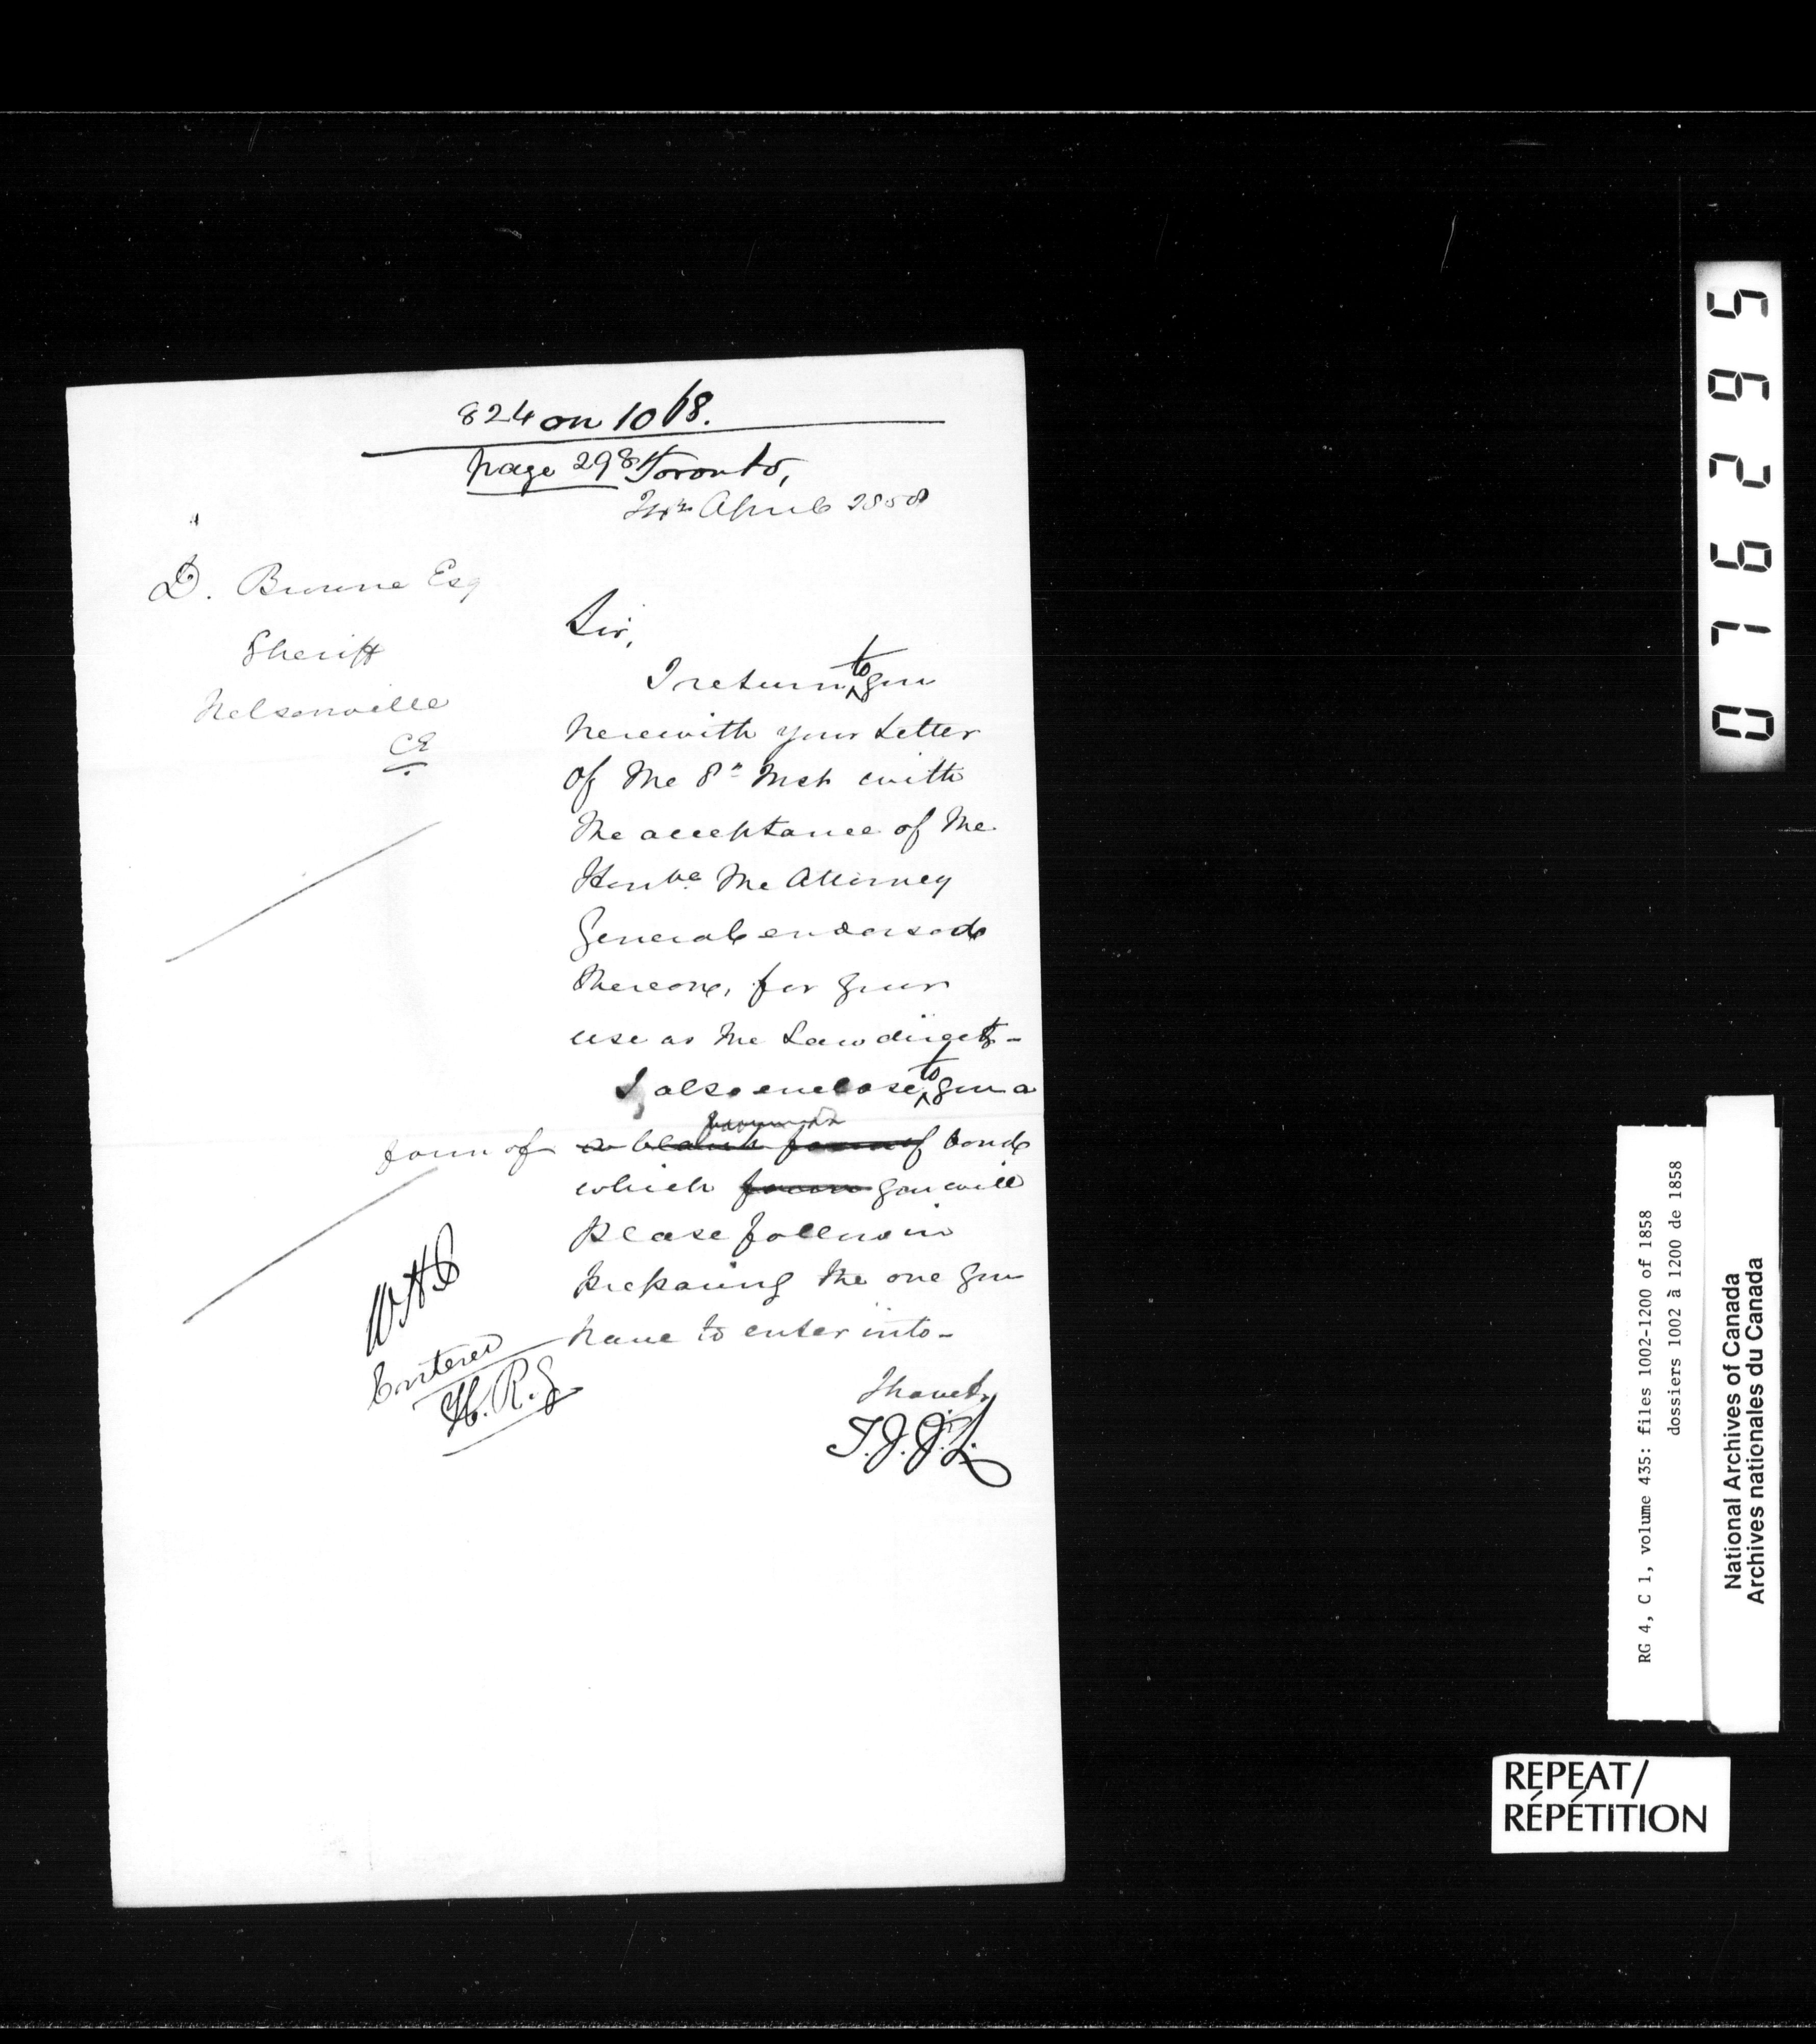 824 on 1068.
page 298
Toronto,
April 1858
D. Browne Esq
Sheriff
Nelsonville
CE
Sir,
I return to you
herewith your Letter
of the 8th Inst with
the acceptance of the
Honble the Attorney
General endorsed
thereon, for your
use as the Law directs-
I also enclose to you a
form of a blank form of bond
which form you will
please follow in
preparing the one you
have to enter into-
I have &c
T.J.J.L.
Entered
H.R.G
076295
RG 4, C 1, volume 435: files 1002-1200 of 1858
dossiers 1002 à 1200 de 1858
National Archives of Canada
Archives nationales du Canada
REPEAT/
RÉPÉTITION